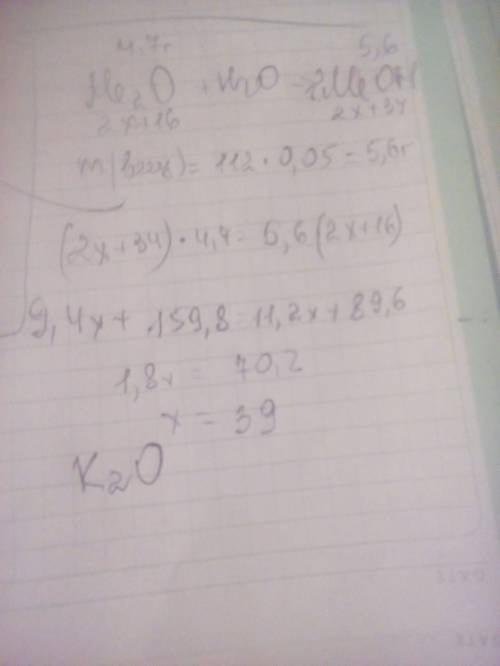 4,7г 5,6
Me₂O + H₂O = 2MeOH
2x+16 2x+34
m(вещ) = 112 · 0,05 = 5,6г
(2x+34) · 4,7 = 5,6(2x+16)
9,4x + 159,8 = 11,2x + 89,6
1,8x = 70,2
x = 39
K₂O